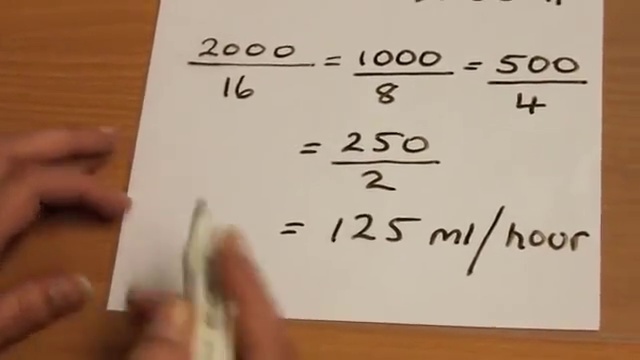 2000/16 = 1000/8 = 500/4
= 250/2
= 125 ml/hour